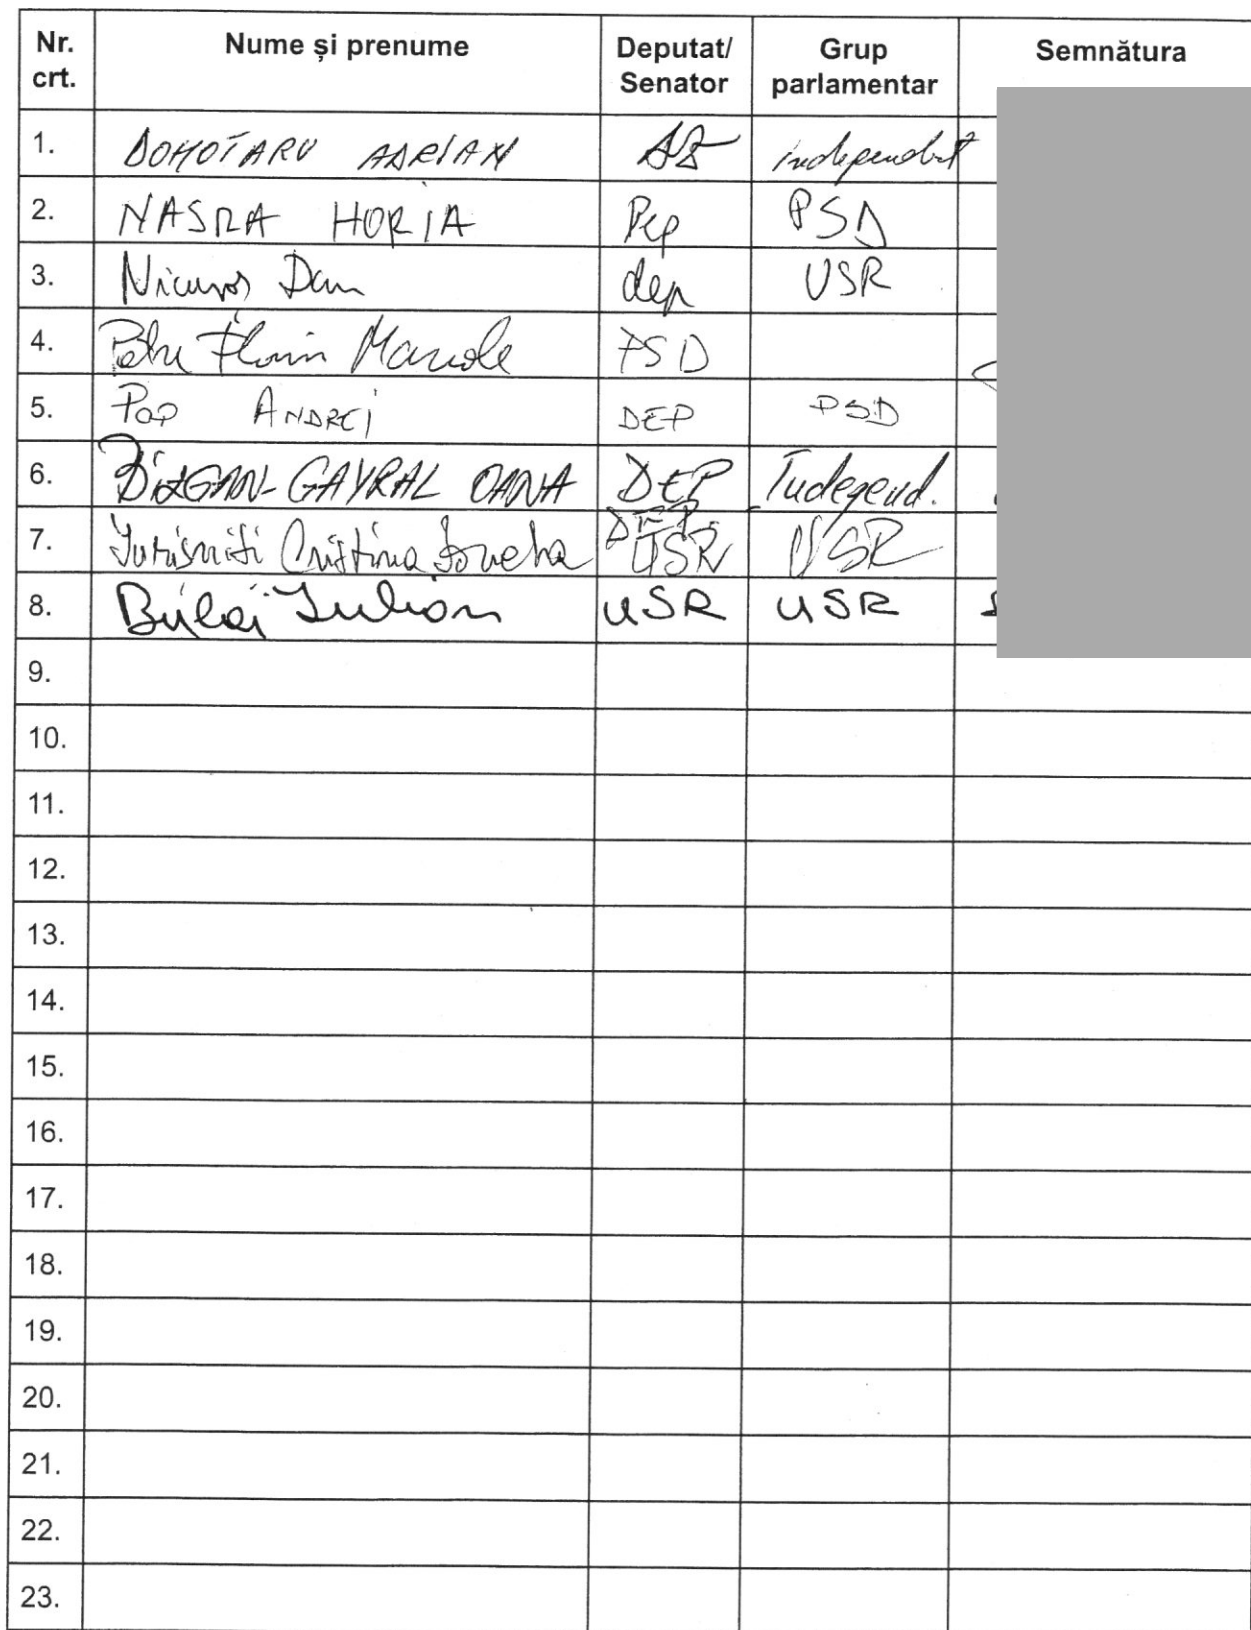 Nr. crt. Nume și prenume Deputat/ Senator Grup parlamentar Semnătura
1. DOHOTARU ADRIAN independent
2. NASRA HORIA Dep PSD
3. Nicușor Dan dep USR
4. Petre Florin Manole PSD
5. POP ANDREI DEP PSD
6. BIZGAN-GAYRAL OANA DEP Independ.
7. Iurișniți Cristina Ionela DEP. USR USR
8. Bulai Iulian USR USR
9.
10.
11.
12.
13.
14.
15.
16.
17.
18.
19.
20.
21.
22.
23.